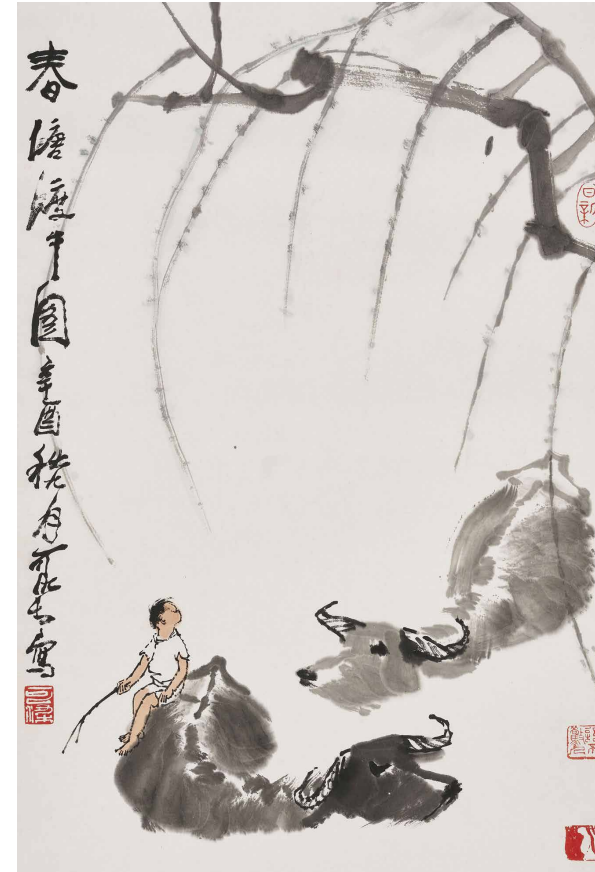 春塘渡牛圖辛酉秋月可染寫
可染
日新